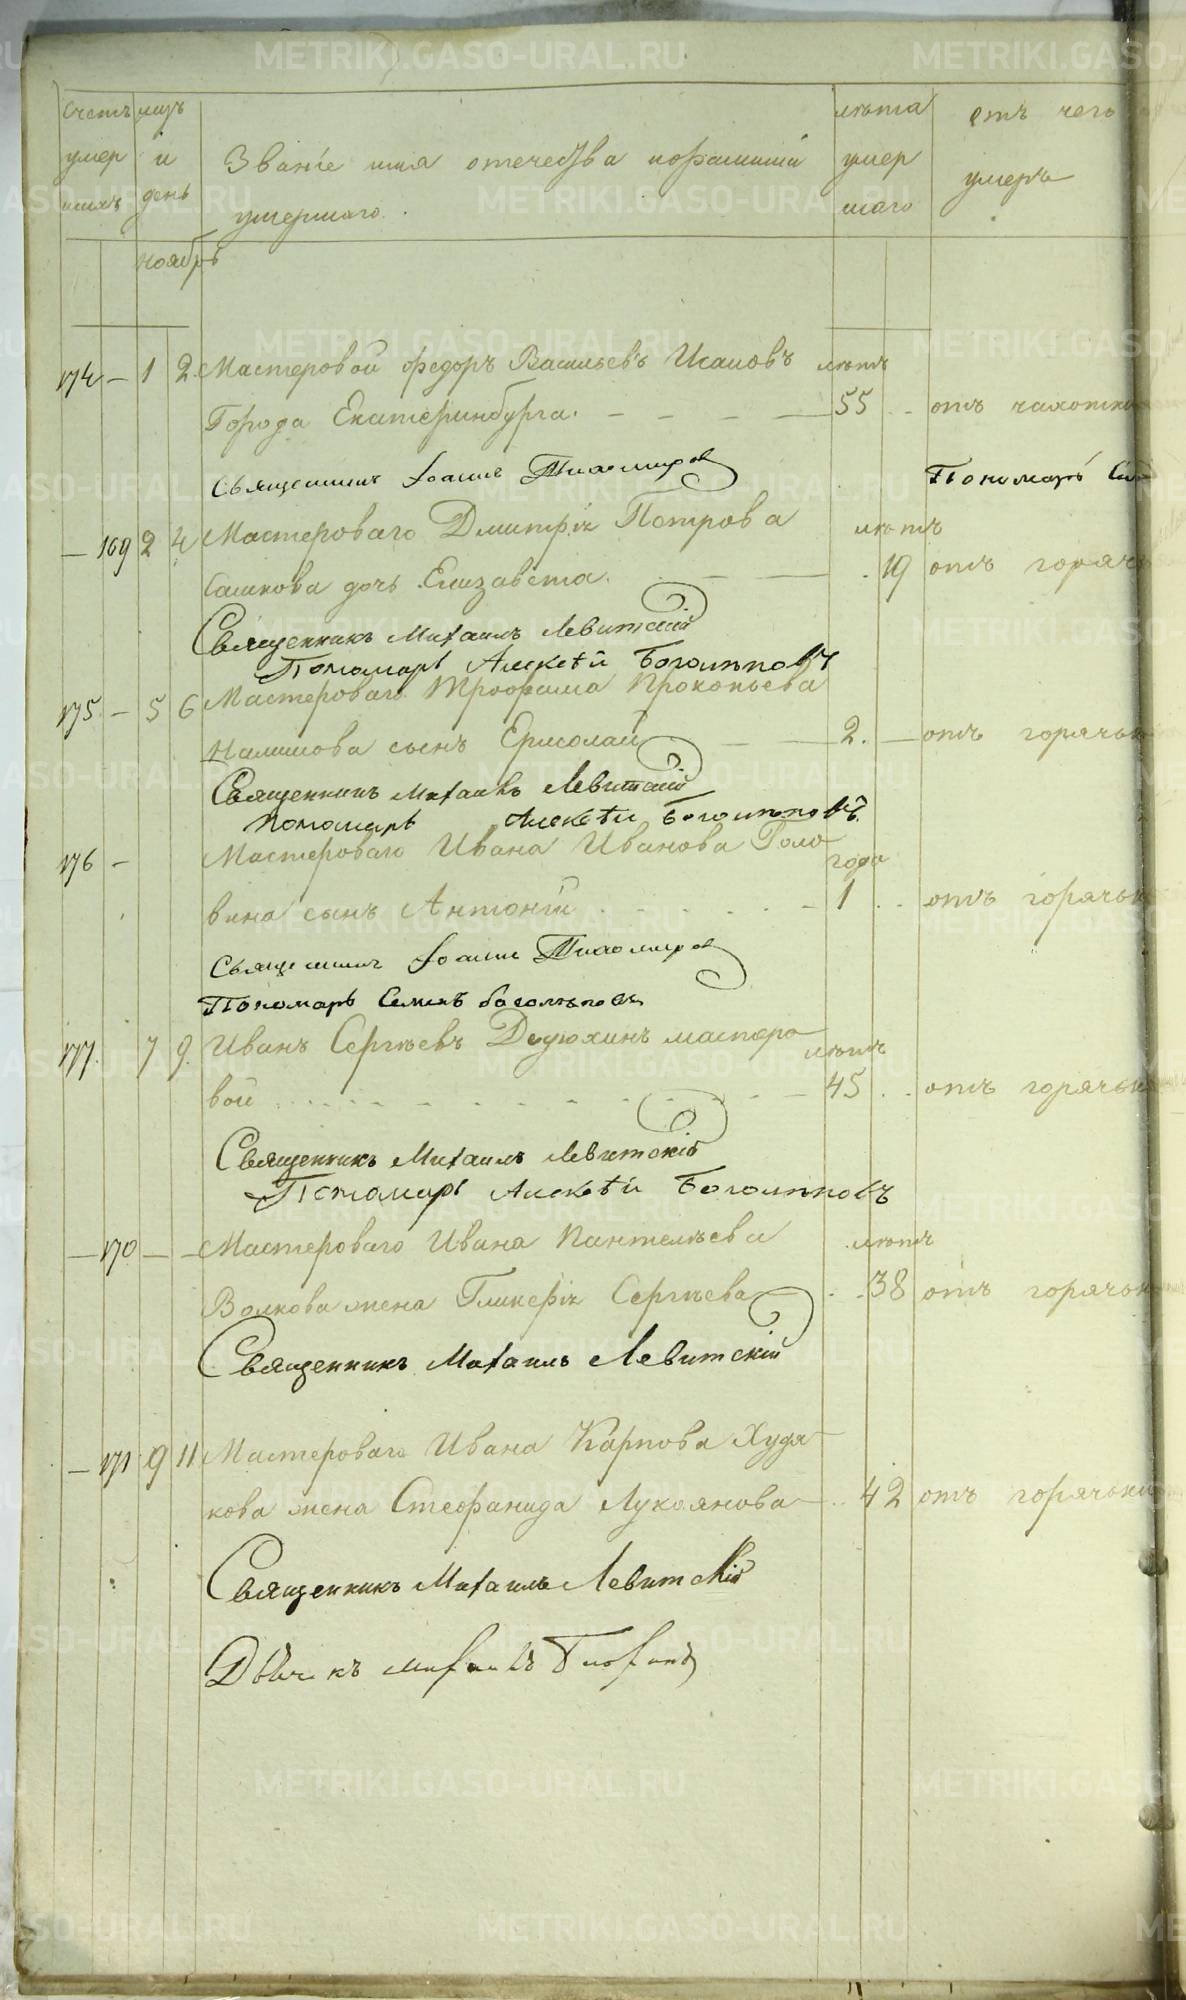 Счетъ умер шихъ
мцъ и день
Званіе имя отечества и фамилія
умершаго.
лѣта умер шаго
отъ чего
умеръ
ноябрь
174 — 1 2 Мастеровой Федоръ Васильевъ Исаковъ лѣтъ
Города Екатеринбурга. — — — — 55 отъ чахотки
Священникъ Іоаннъ Тихомировъ Пономарь
— 169 2 4 Мастероваго Димитрія Петрова лѣтъ
дочь Елизавета. — 19 отъ горяч
Священникъ Михаилъ Левитскій
Пономарь Алексѣй Боголѣповъ
175 — 5 6 Мастероваго Трофима Прокопьева
сынъ Ермолай — — 2. — отъ горячьк
Священникъ Михаилъ Левитскій
Пономарь Алексѣй Боголѣповъ
176 — Мастероваго Ивана Иванова Голо года
вина сынъ Антоній 1 отъ горячьк
Священникъ Іоаннъ Тихомировъ
Пономарь Симонъ Боголѣповъ
177. 7 9. Иванъ Сергѣевъ Дедюхинъ мастеро лѣтъ
вой 45 отъ горячьк
Священникъ Михаилъ Левитскій
Пономарь Алексѣй Боголѣповъ
— 170 — — Мастероваго Ивана Пантелѣева лѣтъ
Волкова жена Гликерія Сергѣева 38 отъ горячьк
Священникъ Михаилъ Левитскій
— 171 9 11 Мастероваго Ивана Карпова Худя
кова жена Стефанида Лукоянова — 42 отъ горячьки
Священникъ Михаилъ Левитскій
METRIKI.GASO-URAL.RU